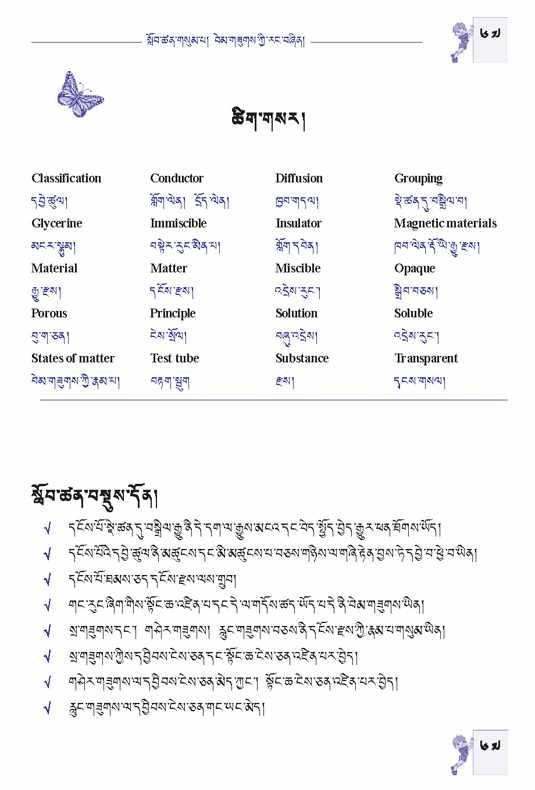 སློབ་ཚན་གསུམ་པ། བེམ་གཟུགས་ཀྱི་རང་བཞིན།
ཚིག་གསར།
Classification Conductor Diffusion Grouping
དབྱེ་ཚུལ། གློག་ལེན། དྲོད་ལེན། ཁྱབ་གདལ། སྡེ་ཚན་དུ་བསྒྲིལ་བ།
Glycerine Immiscible Insulator Magnetic materials
མངར་སྣུམ། བསྲེར་རུང་མིན་པ། གློག་དབེན། ཁབ་ལེན་རྡོ་ཡི་རྒྱུ་རྫས།
Material Matter Miscible Opaque
རྒྱུ་རྫས། དངོས་རྫས། འདྲེས་རུང་། སྒྲིབ་བཅས།
Porous Principle Solution Soluble
བུ་ག་ཅན། ངེས་སྲོལ། བཞུ་འདྲེས། འདྲེས་རུང་།
States of matter Test tube Substance Transparent
བེམ་གཟུགས་ཀྱི་རྣམ་པ། བརྟག་སྦུག རྫས། དྭངས་གསལ།
སློབ་ཚན་བསྡུས་དོན།
√ དངོས་པོ་སྡེ་ཚན་དུ་བསྒྲིལ་རྒྱུ་ནི་དེ་དག་ལ་རྒྱུས་མངའ་དང་བེད་སྤྱོད་བྱེད་རྒྱུར་ཕན་ཐོགས་ཡོད།
√ དངོས་པོའི་དབྱེ་ཚུལ་ནི་མཚུངས་དང་མི་མཚུངས་པ་བཅས་གཉིས་ལ་གཞི་རྟེན་བྱས་ཏེ་དབྱེ་བ་ཕྱེ་བ་ཡིན།
√ དངོས་པོ་ཐམས་ཅད་དངོས་རྫས་ལས་གྲུབ།
√ གང་རུང་ཞིག་གིས་སྟོང་ཆ་འཛིན་པ་དང་དེ་ལ་གདོས་ཚད་ཡོད་པ་དེ་ནི་བེམ་གཟུགས་ཡིན།
√ སྲ་གཟུགས་དང་། གཤེར་གཟུགས། རླུང་གཟུགས་བཅས་ནི་དངོས་རྫས་ཀྱི་རྣམ་པ་གསུམ་ཡིན།
√ སྲ་གཟུགས་ཀྱིས་དབྱིབས་ངེས་ཅན་དང་སྟོང་ཆ་ངེས་ཅན་འཛིན་པར་བྱེད།
√ གཤེར་གཟུགས་ལ་དབྱིབས་ངེས་ཅན་མེད་ཀྱང་། སྟོང་ཆ་ངེས་ཅན་འཛིན་པར་བྱེད།
√ རླུང་གཟུགས་ལ་དབྱིབས་ངེས་ཅན་གང་ཡང་མེད།